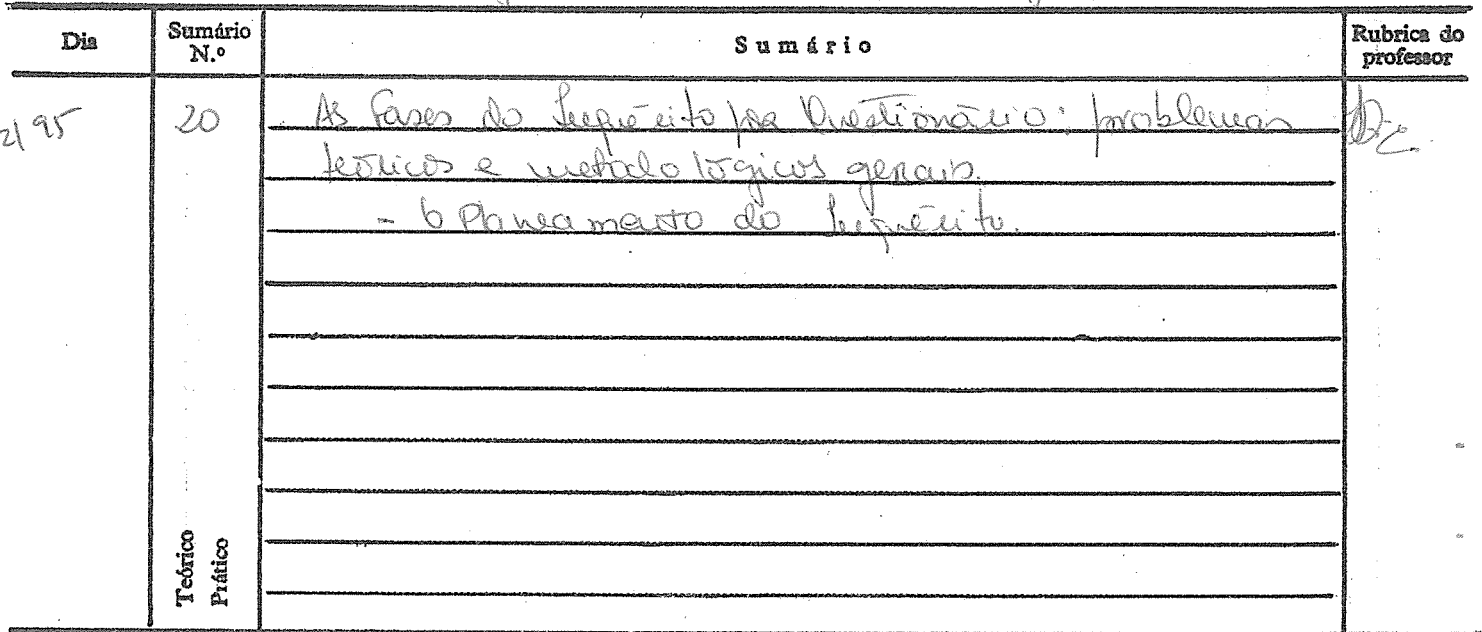 Dia
Sumário N.º
Sumário
Rubrica do professor
2/95
20
As Fases do Inquérito por Questionário: problemas
teóricos e metodológicos gerais.
- O Planeamento do Inquérito.
Teórico
Prático